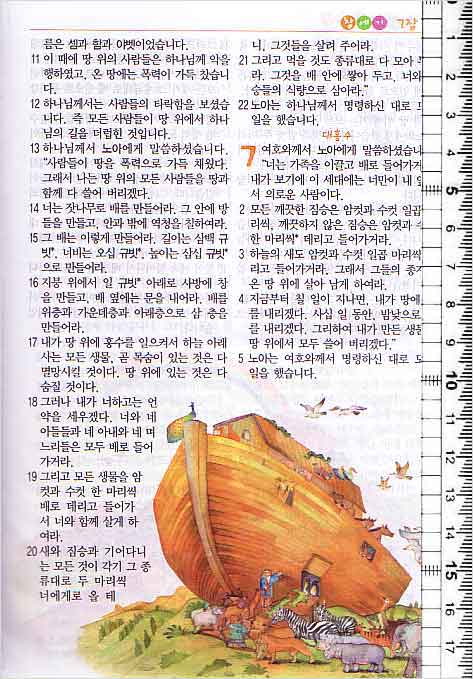 창세기 7장
름은 셈과 함과 야벳이었습니다.
11 이 때에 땅 위의 사람들은 하나님께 악을
행하였고, 온 땅에는 폭력이 가득 찼습니
다.
12 하나님께서는 사람들의 타락함을 보셨습
니다. 즉 모든 사람들이 땅 위에서 하나
님의 길을 더럽힌 것입니다.
13 하나님께서 노아에게 말씀하셨습니다.
“사람들이 땅을 폭력으로 가득 채웠다.
그래서 나는 땅 위의 모든 사람들을 땅과
함께 다 쓸어 버리겠다.
14 너는 잣나무로 배를 만들어라. 그 안에 방
들을 만들고, 안과 밖에 역청을 칠하여라.
15 그 배는 이렇게 만들어라. 길이는 삼백 규
빗*, 너비는 오십 규빗*, 높이는 삼십 규빗*
으로 만들어라.
16 지붕 위에서 일 규빗* 아래로 사방에 창
을 만들고, 배 옆에는 문을 내어라. 배를
위층과 가운데층과 아래층으로 삼 층을
만들어라.
17 내가 땅 위에 홍수를 일으켜서 하늘 아래
사는 모든 생물, 곧 목숨이 있는 것은 다
멸망시킬 것이다. 땅 위에 있는 것은 다
숨질 것이다.
18 그러나 내가 너하고는 언
약을 세우겠다. 너와 네
아들들과 네 아내와 네 며
느리들은 모두 배로 들어
가거라.
19 그리고 모든 생물을 암
컷과 수컷 한 마리씩
배로 데리고 들어가
서 너와 함께 살게 하
여라.
20 새와 짐승과 기어다니
는 모든 것이 각기 그 종
류대로 두 마리씩
너에게로 올 테
니, 그것들을 살려 주어라.
21 그리고 먹을 것도 종류대로 다 모아
라. 그것을 배 안에 쌓아 두고, 너와
승들의 식량으로 삼아라.”
22 노아는 하나님께서 명령하신 대로
일을 했습니다.
대홍수
7 여호와께서 노아에게 말씀하셨습니
“너는 가족을 이끌고 배로 들어가거
내가 보기에 이 세대에는 너만이 내
서 의로운 사람이다.
2 모든 깨끗한 짐승은 암컷과 수컷 일곱
리씩, 깨끗하지 않은 짐승은 암컷과
한 마리씩* 데리고 들어가거라.
3 하늘의 새도 암컷과 수컷 일곱 마리씩
리고 들어가거라. 그래서 그들의 종
온 땅 위에 살아 남게 하여라.
4 지금부터 칠 일이 지나면, 내가 땅에
를 내리겠다. 사십 일 동안, 밤낮으로
를 내리겠다. 그리하여 내가 만든 생
땅 위에서 모두 쓸어 버리겠다.”
5 노아는 여호와께서 명령하신 대로
일을 했습니다.
0
1
2
3
4
5
6
7
8
9
10
11
12
13
14
15
16
17